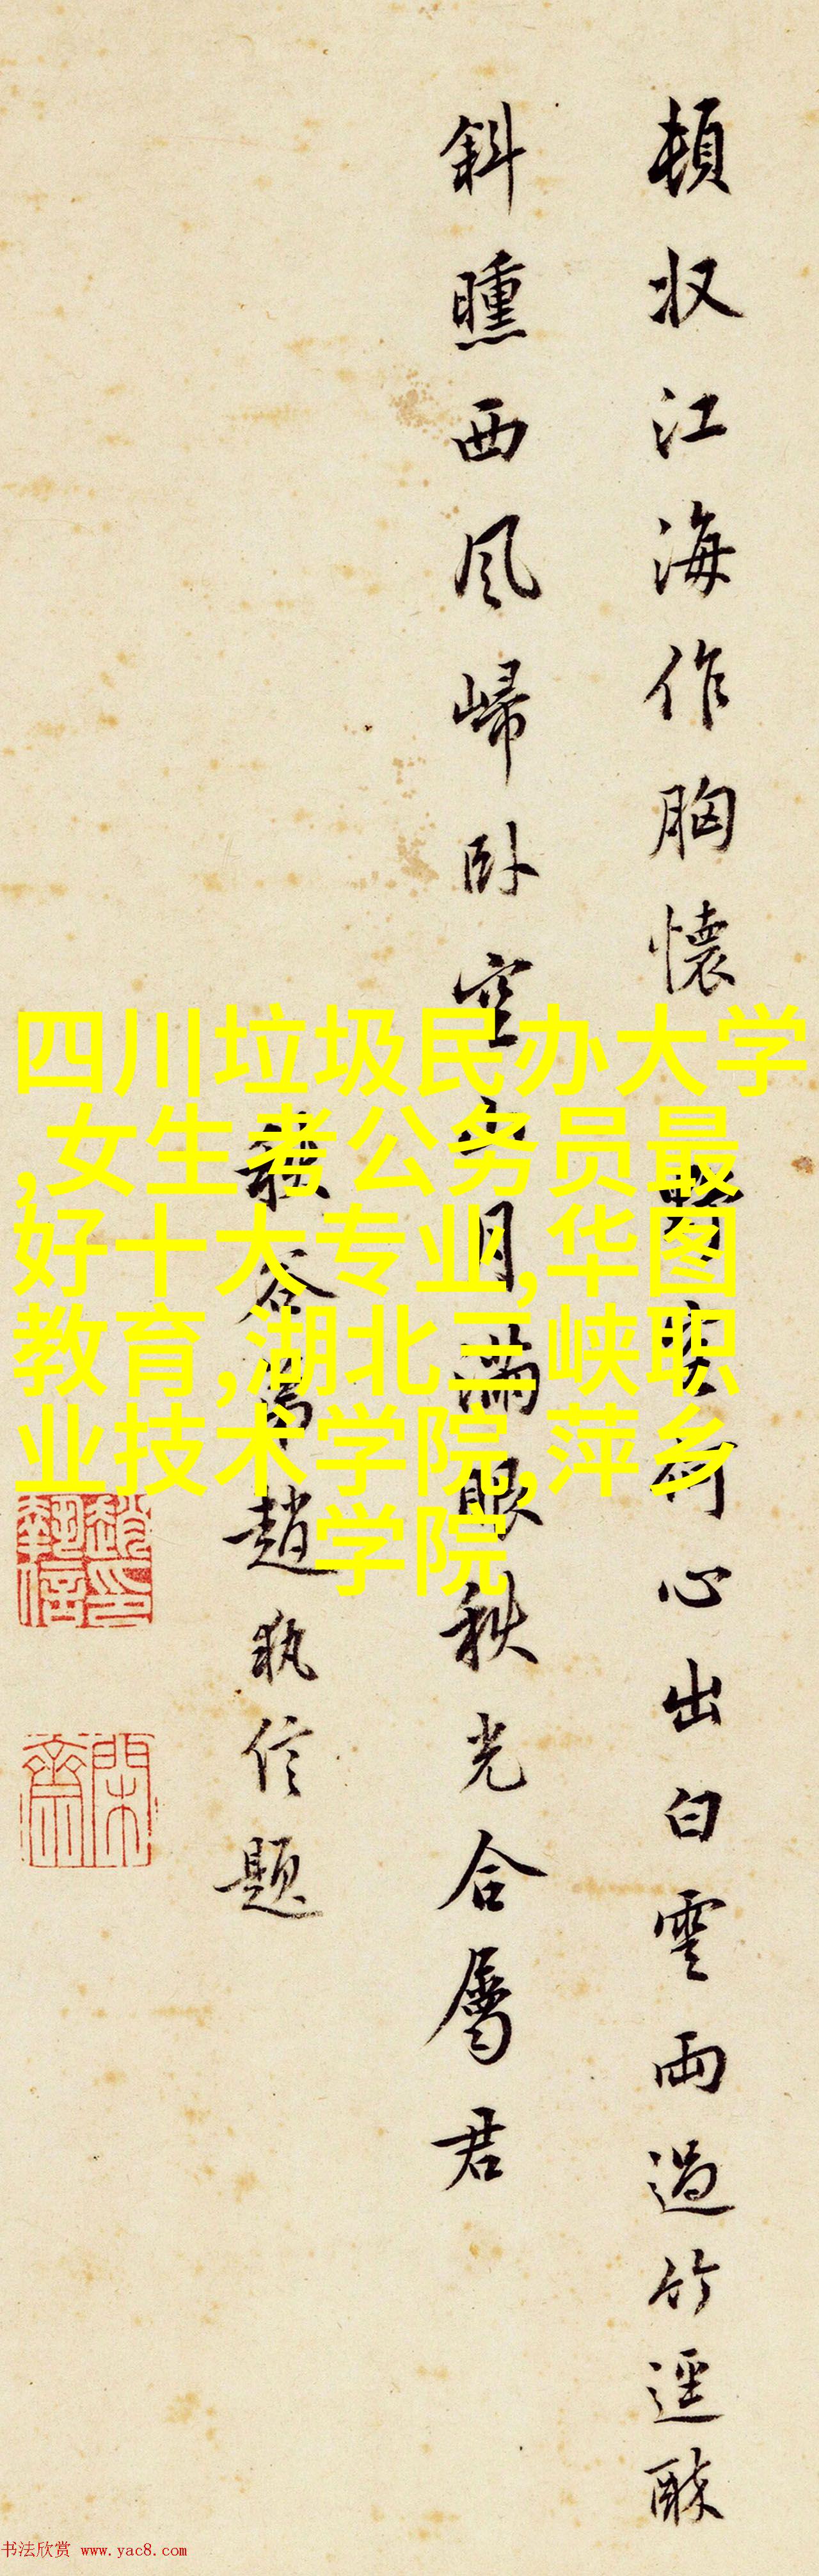 頓収江海作胸懷 心出白雲雨過竹逕酥
斜曛西風歸卧空 月滿眼秋光合屬君
趙執信題
四川垃圾民办大学
,女生考公务员最
好十大专业,华图
教育,湖北三峡职
业技术学院,萍乡
学院
趙執信印
閑齋
书法欣赏 www.yac8.com